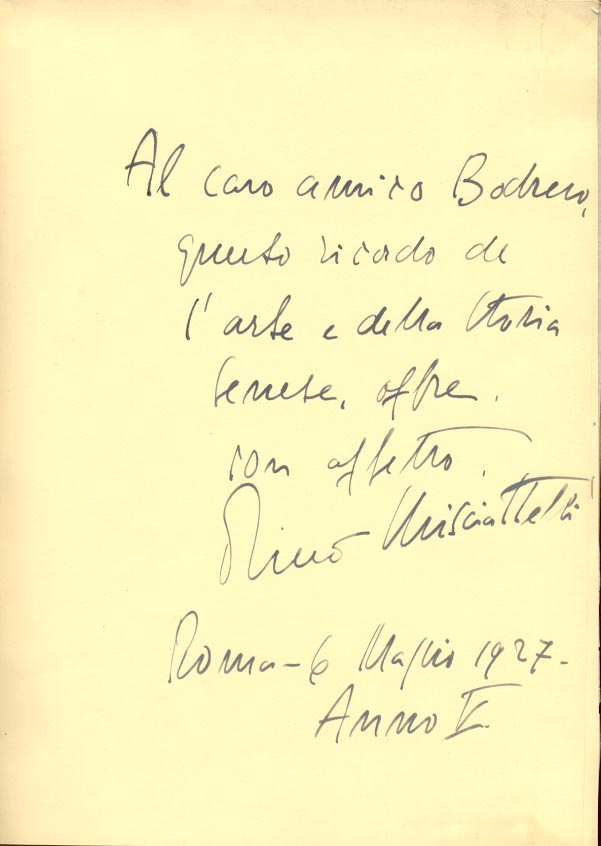 Al caro amico Bodrero,
questo ricordo de
l'arte e della storia
senese, offre.
con affetto.
Piero Misciattelli
Roma - 6 Maggio 1927.
Anno V.